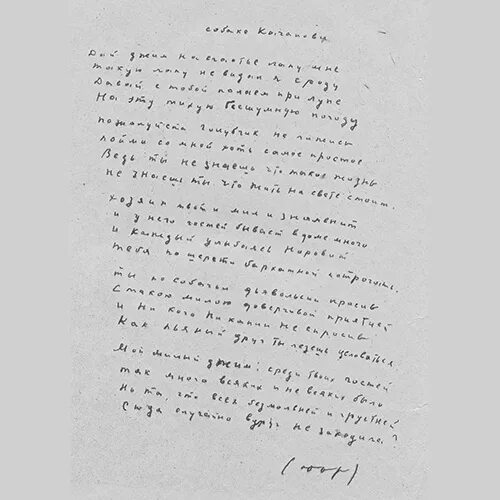 собаке Качалова
Дай джим на счастье лапу мне
такую лапу не видал я сроду
Давай с тобой полаем при луне
На эту тихую бесшумную погоду
пожалуйста голубчик не лижись
пойми со мной хоть самое простое
Ведь ты не знаешь что такое жизнь
не знаешь ты что жить на свете стоит.
хозяин твой и мил и знаменит
и у него гостей бывает в доме много
и каждый улыбаясь норовит
тебя по шерсти бархатной потрогать.
ты по собачьи дьявольски красив
С такою милою доверчивой приятцей
и ни кого ни капли не спросив
Как пьяный друг ты лезешь целоваться
Мой милый джим, среди твоих гостей
так много всяких и не всяких было
Но та, что всех безмолвней и грустней
Сюда случайно вдруг не заходила?